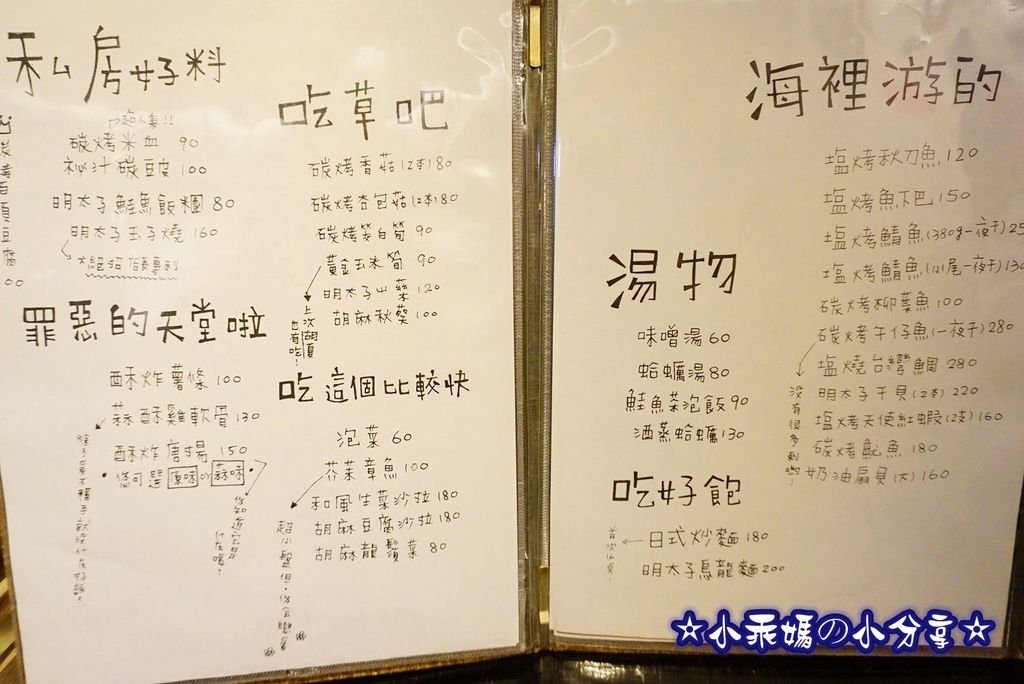 私房好料
超人氣!!
碳烤米血 90
祕汁碳豆皮 100
明太子鮭魚飯糰 80
明太子玉子燒 160
大絕招店長專利
罪惡的天堂啦
酥炸薯條 100
蒜酥雞軟骨 130
酥炸唐揚 150
•您可選 原味 or 蒜味•
你知道它是什在嗎？
吃草吧
碳烤香菇(2本) 80
碳烤杏包菇(2本) 80
碳烤茭白筍 90
黃金玉米筍 90
明太子山藥 120
胡麻秋葵 100
上次胡夏也有吃！
吃這個比較快
泡菜 60
芥茉章魚 100
和風生菜沙拉 180
胡麻豆腐沙拉 180
胡麻龍鬚菜 80
湯物
味噌湯 60
蛤蠣湯 80
鮭魚茶泡飯 90
酒蒸蛤蠣 130
吃好飽
日式炒麵 180
明太子烏龍麵 200
海裡游的
塩烤秋刀魚 120
塩烤魚下巴 150
塩烤鯖魚(380g一夜干) 25
塩烤鯖魚(小尾一夜干) 130
碳烤柳葉魚 100
碳烤午仔魚(一夜干) 280
塩燒台灣鯛 280
明太子干貝(2本) 220
塩烤天使紅蝦(2支) 160
碳烤魷魚 180
奶油扇貝(大) 160
沒有很多刺喲！
☆小乖媽の小分享☆